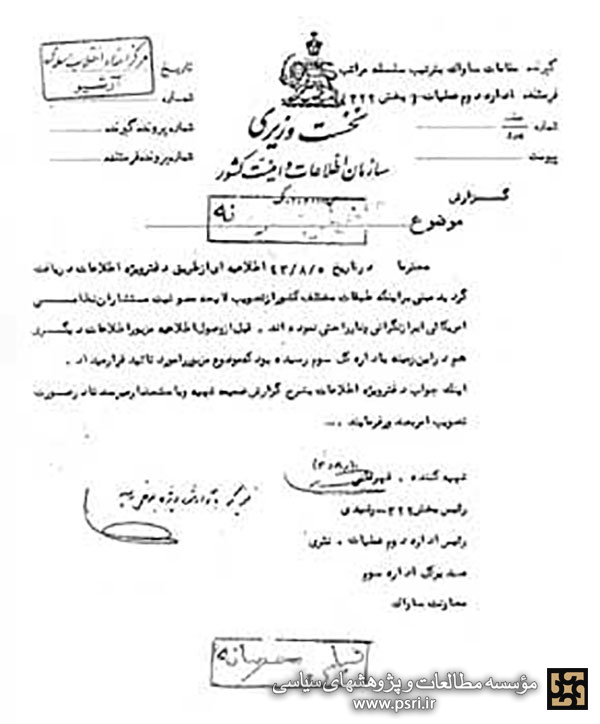 مرکز اسناد انقلاب اسلامی
آرشیو
گیرنده مقامات ساواک بترتیب سلسله مراتب
فرستنده اداره دوم عملیات (بخش ۳۲۲)
شماره
پیوست
تاریخ
شماره
شماره پرونده گیرنده
شماره پرونده فرستنده
نخست وزیری
سازمان اطلاعات و امنیت کشور
گزارش
موضوع
محترما در تاریخ ۴۳/۸/۵ اطلاعیه ای از طریق دفتر ویژه اطلاعات دریافت
گردید مبنی بر اینکه طبقات مختلف کشور از تصویب لایحه مصونیت مستشاران نظامی
امریکائی ابراز نگرانی و ناراحتی نموده اند. قبل از وصول اطلاعیه مزبور اطلاعات دیگری
هم در این زمینه باداره کل سوم رسیده بود که موضوع مزبور را مورد تائید قرار میداد.
اینک جواب دفتر ویژه اطلاعات بشرح گزارش ضمیمه تهیه و باستحضار میرسد تا در صورت
تصویب امر بصدور فرمایند ...
تهیه کننده .
رئیس بخش ۳۲۲ - رشیدی
رئیس اداره دوم عملیات .
مدیرکل اداره سوم
معاونت ساواک
خیلی محرمانه
مؤسسه مطالعات و پژوهشهای سیاسی
www.psri.ir